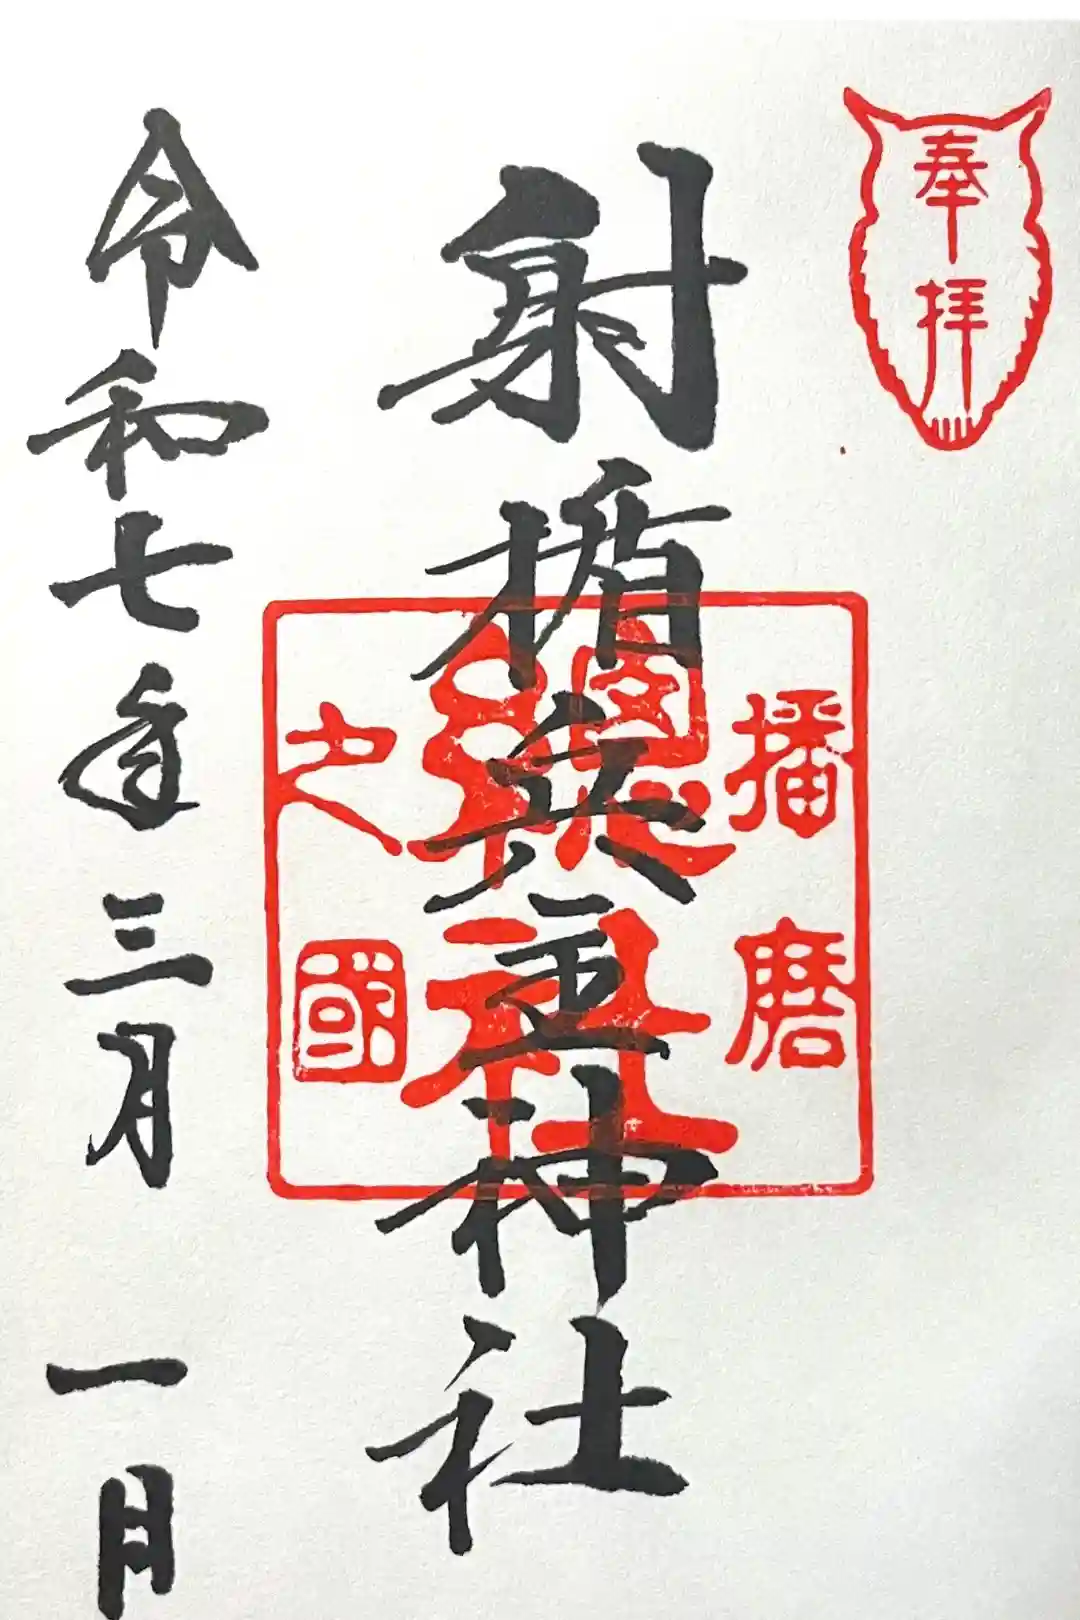 奉拝
射楯兵主神社
播磨
総社
之國
令和七年三月一日